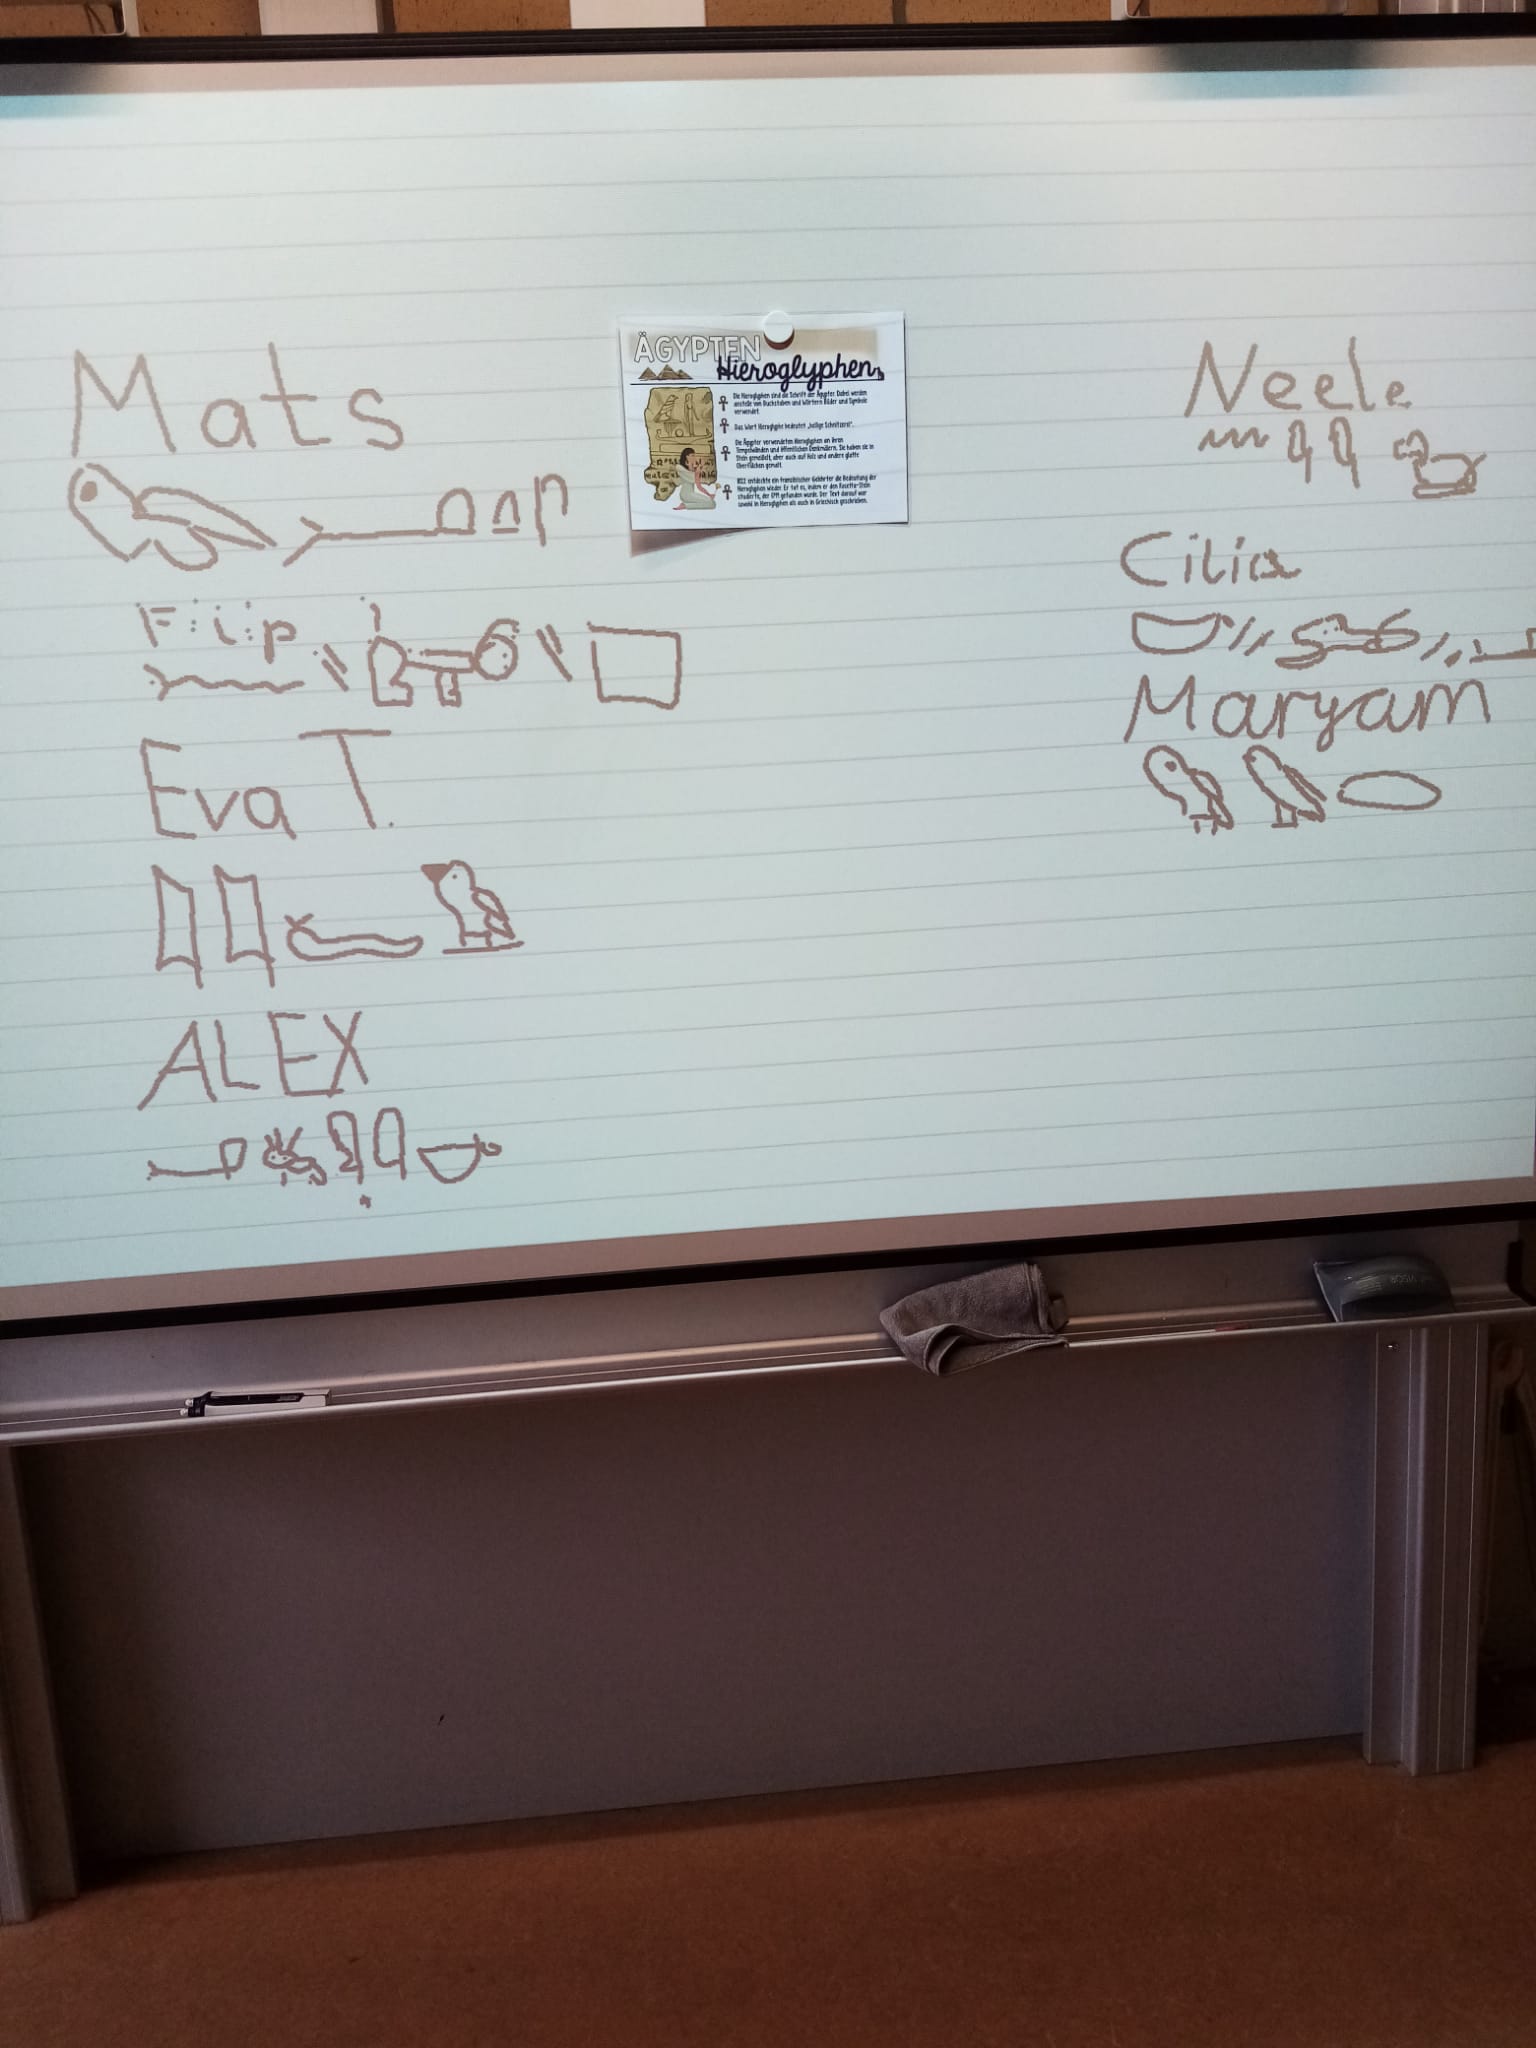 Mats
Filip
Eva T.
ALEX
ÄGYPTEN
Hieroglyphen
Die Hieroglyphen sind die Schrift der Ägypter. Dabei werden
anstelle von Buchstaben und Wörtern Bilder und Symbole
verwendet.
Das Wort Hieroglyphe bedeutet „heilige Schnitzerei".
Die Ägypter verwendeten Hieroglyphen an ihren
Tempelwänden und öffentlichen Denkmälern. Sie haben sie in
Stein gemeißelt, aber auch auf Holz und andere glatte
Oberflächen gemalt.
1822 entdeckte ein französischer Gelehrter die Bedeutung der
Hieroglyphen wieder. Er tat es, indem er den Rosetta-Stein
studierte, der 1799 gefunden wurde. Der Text darauf war
sowohl in Hieroglyphen als auch in Griechisch geschrieben.
Neele
Cilia
Maryam